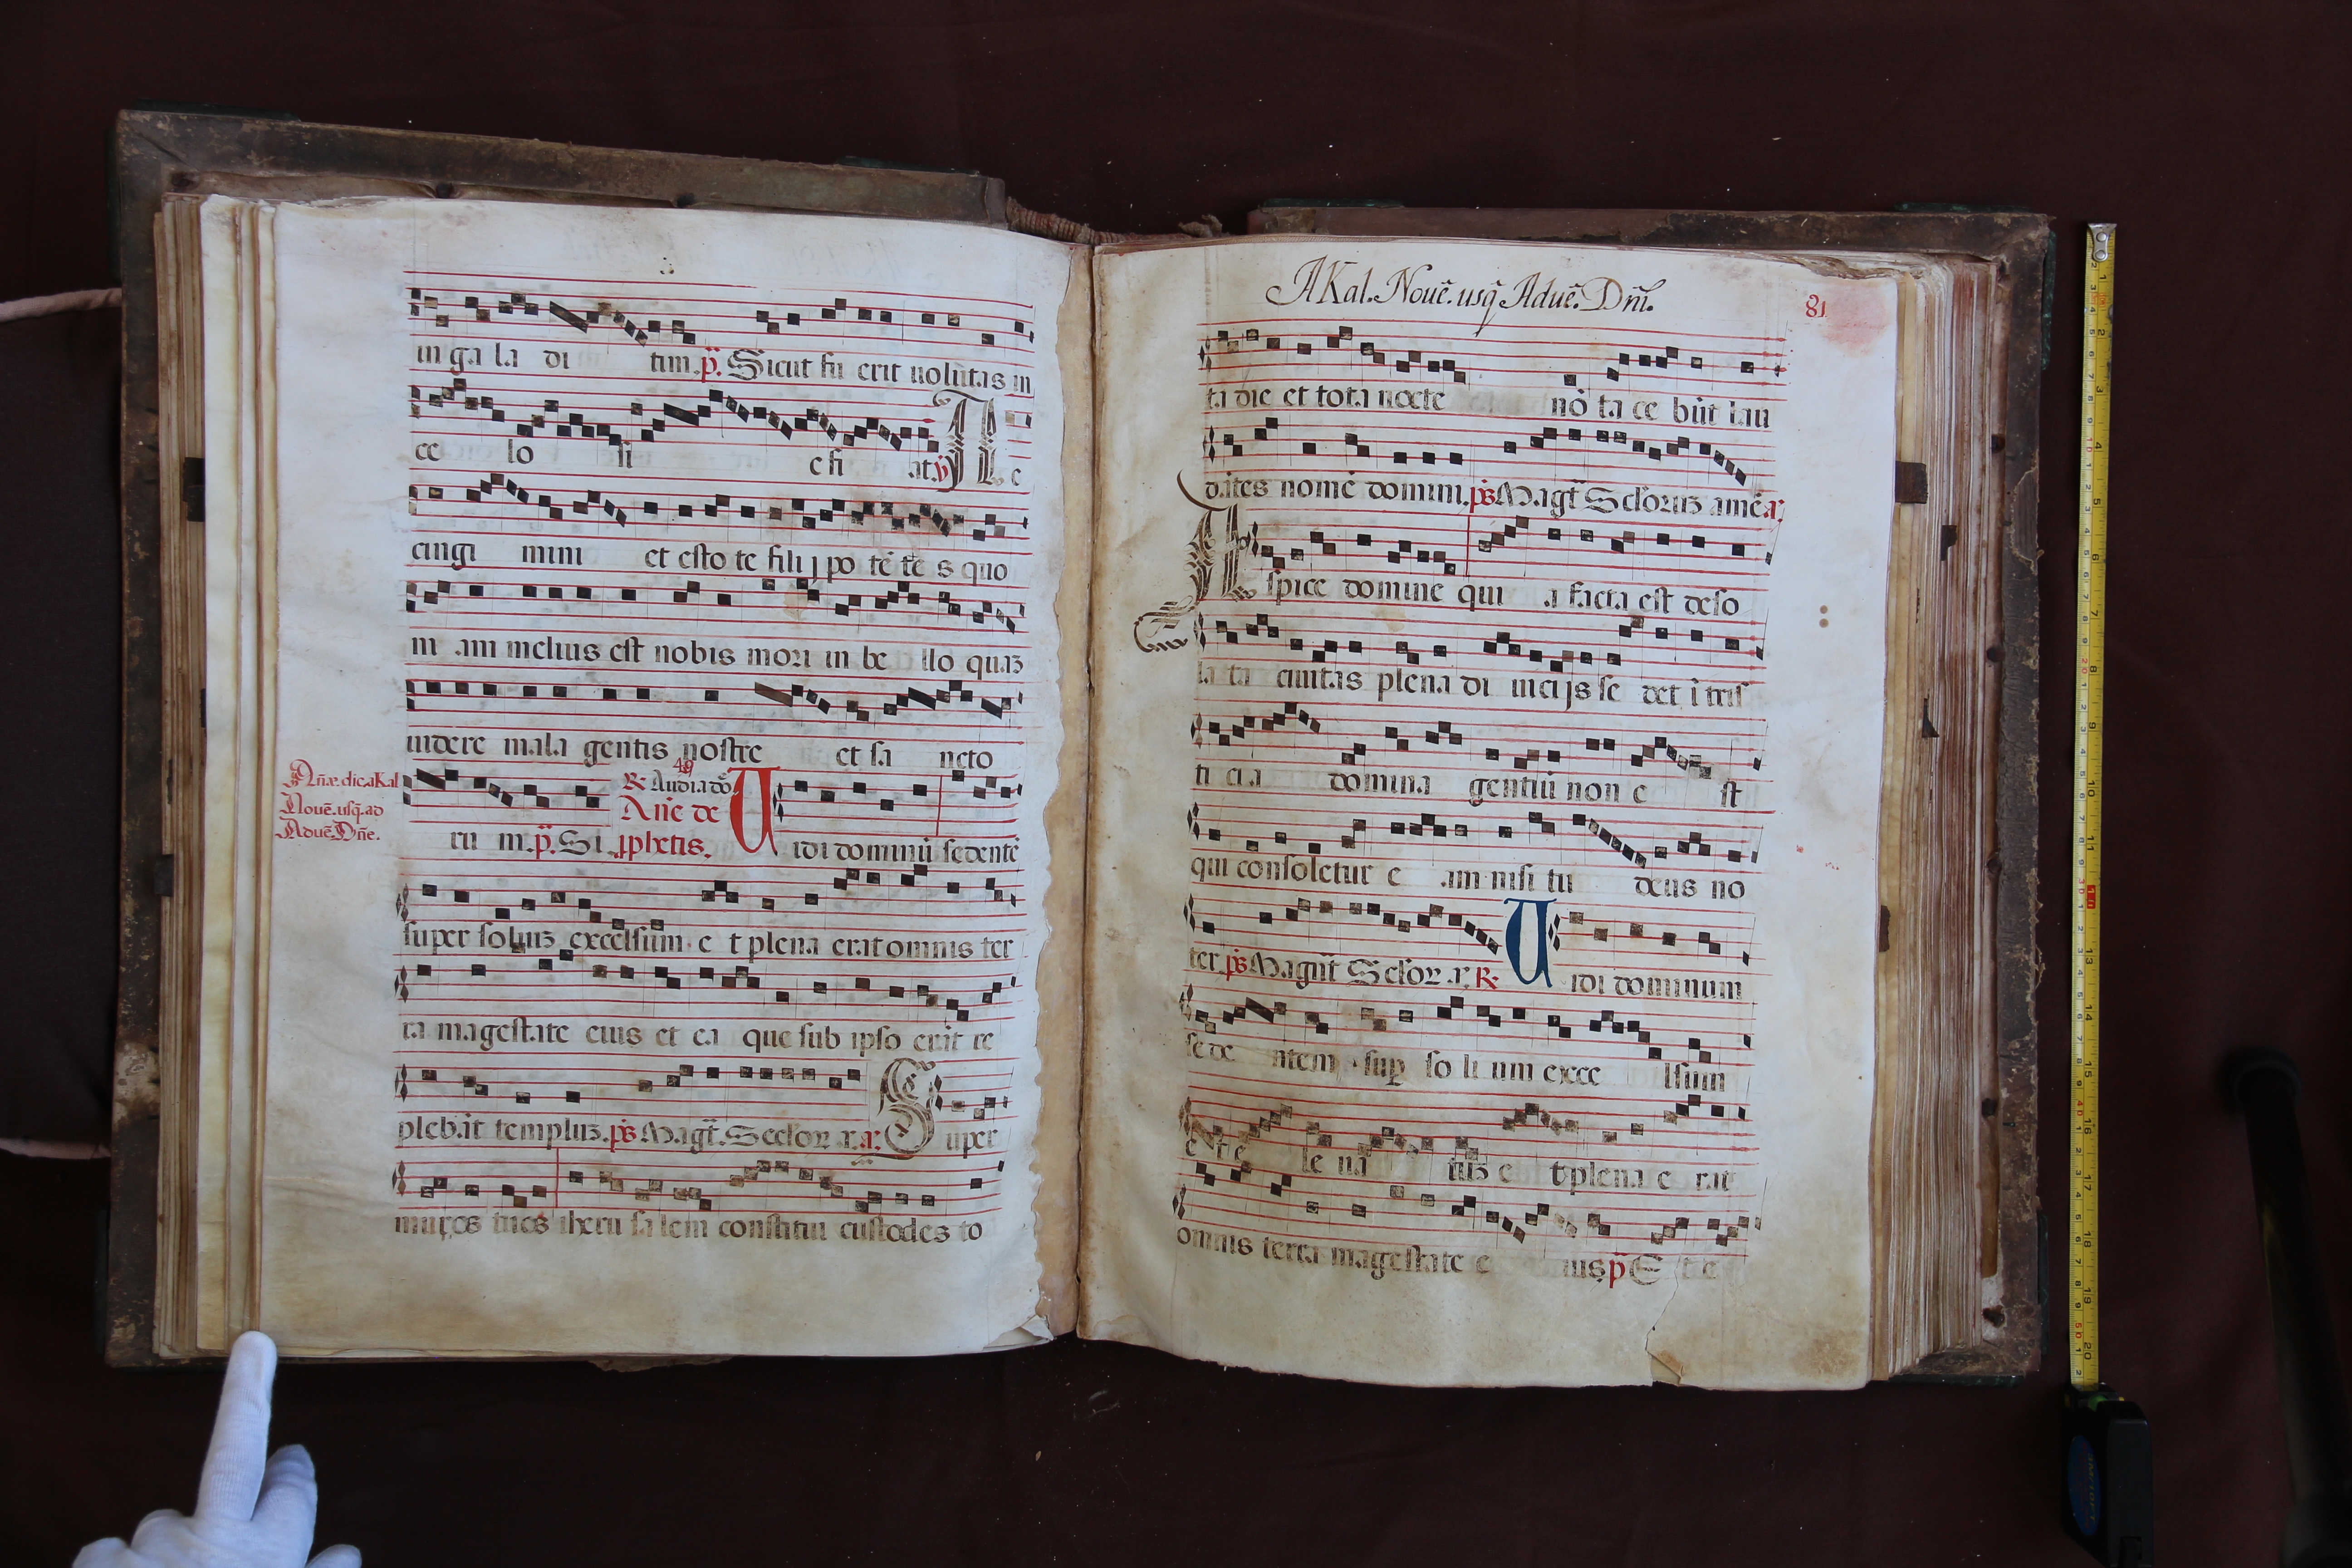 in ga la di tim. p̃. Sicut fu erit uolũtas in
ce lo si c fi at. ℣ A c
cingi mini et esto te filij po tẽ te s quo
ni am melius est nobis mori in be llo quaʒ
uidere mala gentis nostre et sa ncto
Añæ. dic. a Kal
Nouẽ. usq̃. ad
Aduẽ. Dñe.
49
℟ Audia dõ
Añe de
ru m. p̃. Si . ꝓphetis. U idi dominũ sedentẽ
super soliuʒ excelsum. e t plena erat omnis ter
ra magestate eius et ea que sub ipso erãt re
plebãt templuʒ. p̃s Magt̃. Seclorꝝ a. a: S uper
muros tuos iheru salem constitui custodes to
A Kal. Nouẽ. usq̃ Aduẽ. Dñi.
81
ta die et tota nocte nõ ta ce bũt lau
dãtes nomẽ domini. p̃s Magt̃ Sclõruʒ amẽ a:
A spice domine qui a facta est deso
la ta ciuitas plena di uicijs se det ĩ tris
ti cia domina gentiũ non e st
qui consoletur e am nisi tu deus no
ter. p̃s Magñt Seclorꝝ a. ℟ U idi dominum
sede ntem sup̱ so li um exce lsum
e t e le ua tuʒ e t plena e rat
omnis terra magestate e ius p̃ E t e